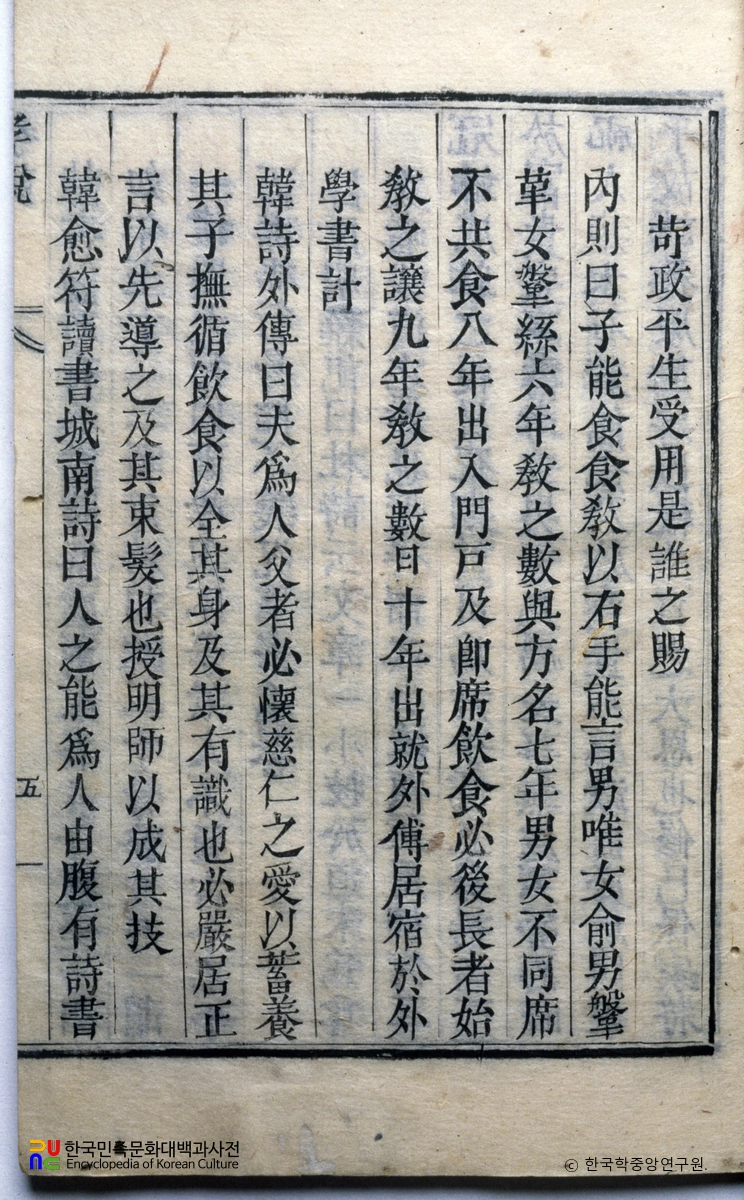 苛政平生受用是誰之賜
內則曰子能食食敎以右手能言男唯女俞男鞶
革女鞶絲六年敎之數與方名七年男女不同席
不共食八年出入門戸及卽席飮食必後長者始
敎之讓九年敎之數日十年出就外傅居宿於外
學書計
韓詩外傳曰夫爲人父者必懷慈仁之愛以蓄養
其子撫循飮食以全其身及其有識也必嚴居正
言以先導之及其束髮也授明師以成其技
韓愈符讀書城南詩曰人之能爲人由腹有詩書
說
五
한국민족문화대백과사전
Encyclopedia of Korean Culture
© 한국학중앙연구원.